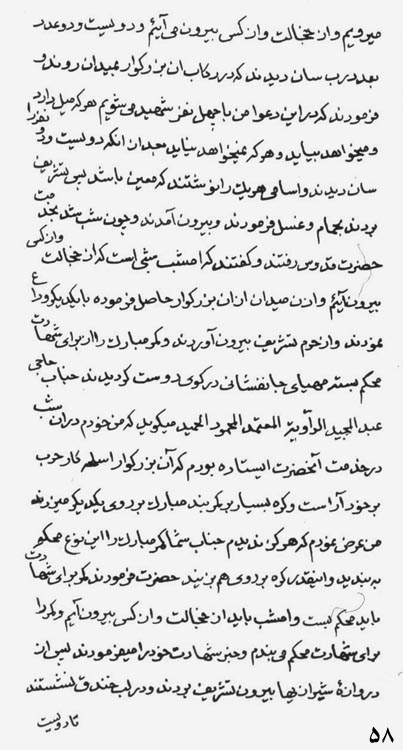 میرویم و از خجالت و از کسی بیرون می آئیم و دویست و دو عدد
بعدد رب سان دیدند که در رکاب آن بزرگوار بمیدان روند و
فرمودند که در این دعوا من با چهل نفر شهید می شویم هر که میل دارد
و میخواهد بیاید و هر که نمیخواهد نیاید بعد از آنکه دویست و دو نفر را
سان دیدند و اسامی هر یک را نوشتند که معین باشد پس تشریف
بردند بحمام و غسل فرمودند و بیرون آمدند و چون شب شد بخدمت
حضرت قدوس رفتند و گفتند که امشب شبی است که از خجالت و از کسی
بیرون آئیم و اذن میدان از آن بزرگوار حاصل فرموده با یکدیگر وداع
نمودند و از حرم تشریف بیرون آوردند و کمر مبارک را از برای شهادت
محکم بسته مهیای جانفشانی در کوی دوست گردیدند جناب حاجی
عبد المجید الراویة المعتمد المحمود الحمید میگوید که من خودم در آن شب
در خدمت آنحضرت ایستاده بودم که آن بزرگوار اسلحه کار حرب
بر خود آراست و گره بسیار بر کمربند مبارک بر روی یکدیگر میزدند
من عرض نمودم که هرگز ندیدم جناب شما کمر مبارک را این نوع محکم
به بندید و اینقدر گره بر روی هم بزنید حضرت فرمودند کمر برای شهادت
باید محکم بست و امشب باید از خجالت و از کسی بیرون آئیم و کمر را
برای شهادت محکم می بندم و خبر شهادت خود را میفرمودند پس از
دروازهٔ شیران بها بیرون تشریف بردند و در لب خندق نشستند
تا دویست
۵۸